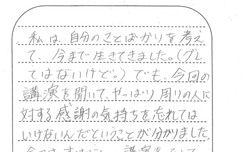 私は、自分のことばかりを考え
て、今まで生きてきました。(グレ
てはないけど。)でも、今回の
講演を聞いて、やっぱり周りの人に
対する感謝の気持ちを忘れては
いけないんだということが分かりました。